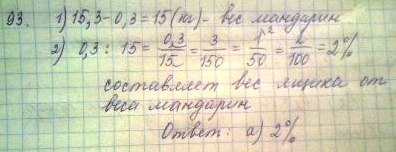 93. 1) 15,3-0,3=15(кг)- вес мандарин
2) 0,3 : 15 = 0,3/15 = 3/150 = 1/50 = 2/100 = 2%
составляет вес ящика от
веса мандарин
Ответ: а) 2%